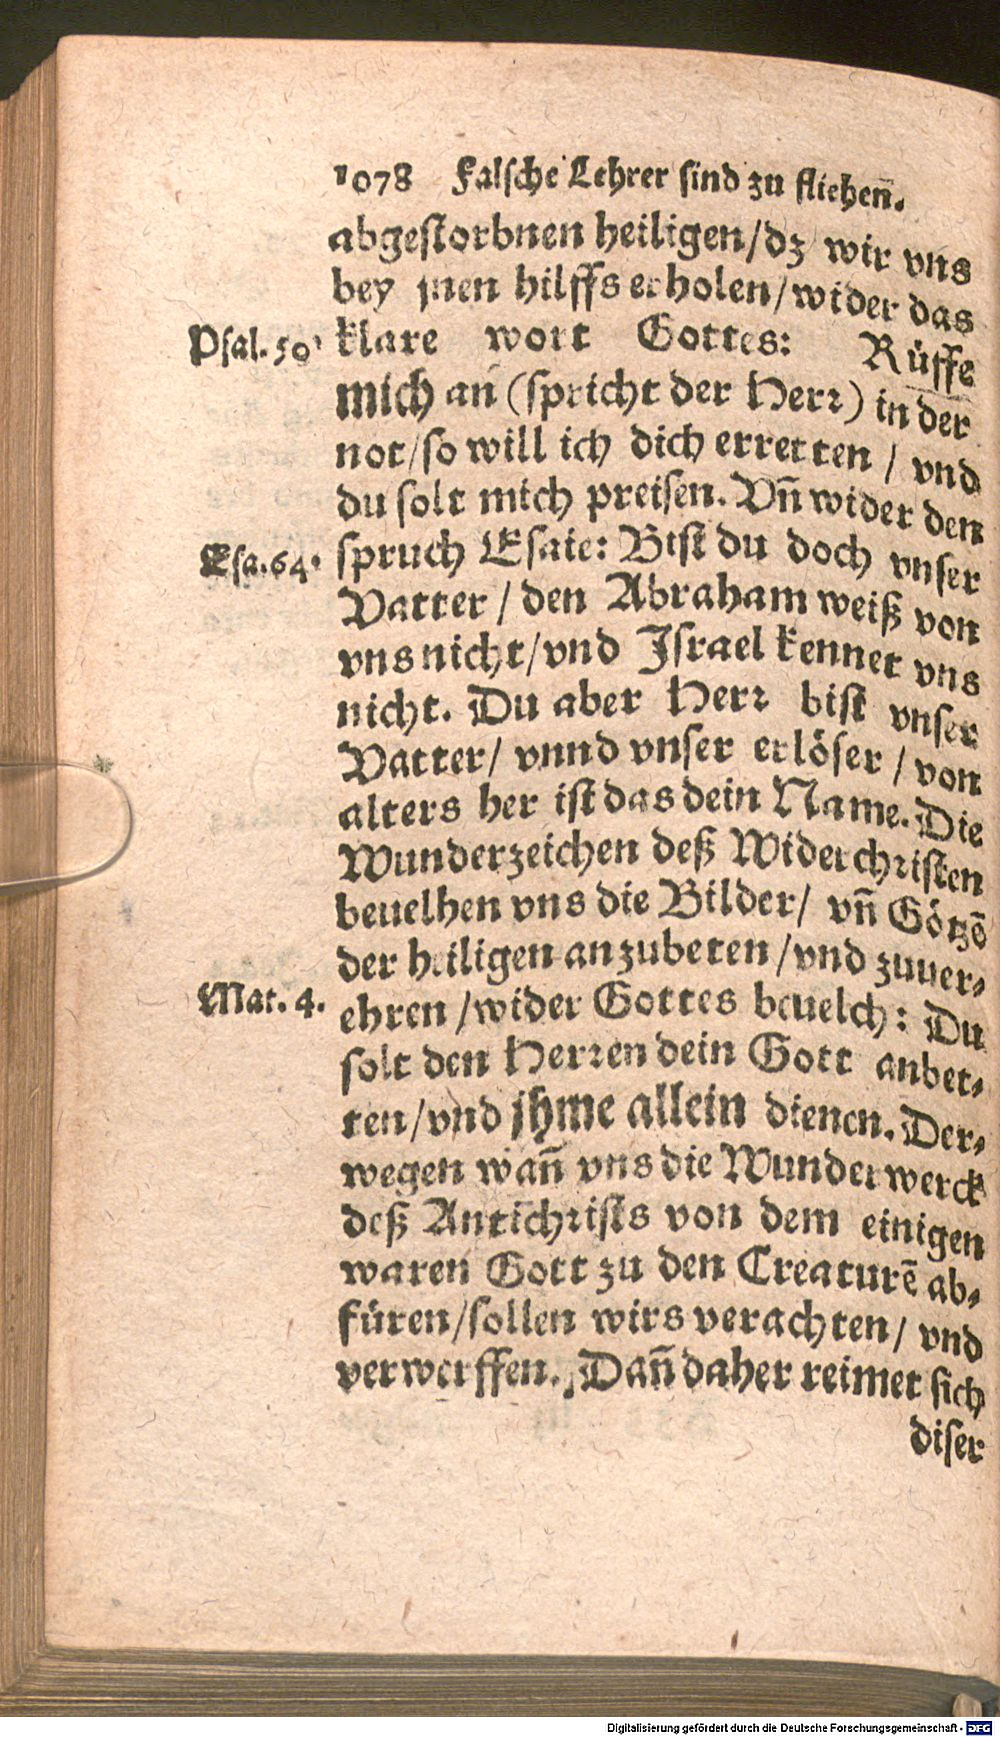 1078 Falsche Lehrer sind zu fliehen̄.
abgestorbnen heiligen/dz wir vns
bey jnen hilffs erholen/wider das
Psal. 50. klare wort Gottes: Rüffe
mich an (spricht der Herr) in der
not/so will ich dich erretten / vnd
du solt mich preisen. Vn̄ wider den
Esa. 64. spruch Esaie: Bist du doch vnser
Vatter / den Abraham weiß von
vns nicht/vnd Israel kennet vns
nicht. Du aber Herr bist vnser
Vatter/ vnnd vnser erlöser / von
alters her ist das dein Name. Die
Wunderzeichen deß Widerchristen
beuelhen vns die Bilder/ vn̄ Götzē
der heiligen anzubeten/vnd zuuer-
Mat. 4. ehren/wider Gottes beuelch: Du
solt den Herren dein Gott anbet-
ten/vnd jhme allein dienen. Der-
wegen wan̄ vns die Wunderwerck
deß Antichrists von dem einigen
waren Gott zu den Creaturē ab-
füren/sollen wirs verachten/ vnd
verwerffen. Dan̄ daher reimet sich
diser
Digitalisierung gefördert durch die Deutsche Forschungsgemeinschaft - DFG